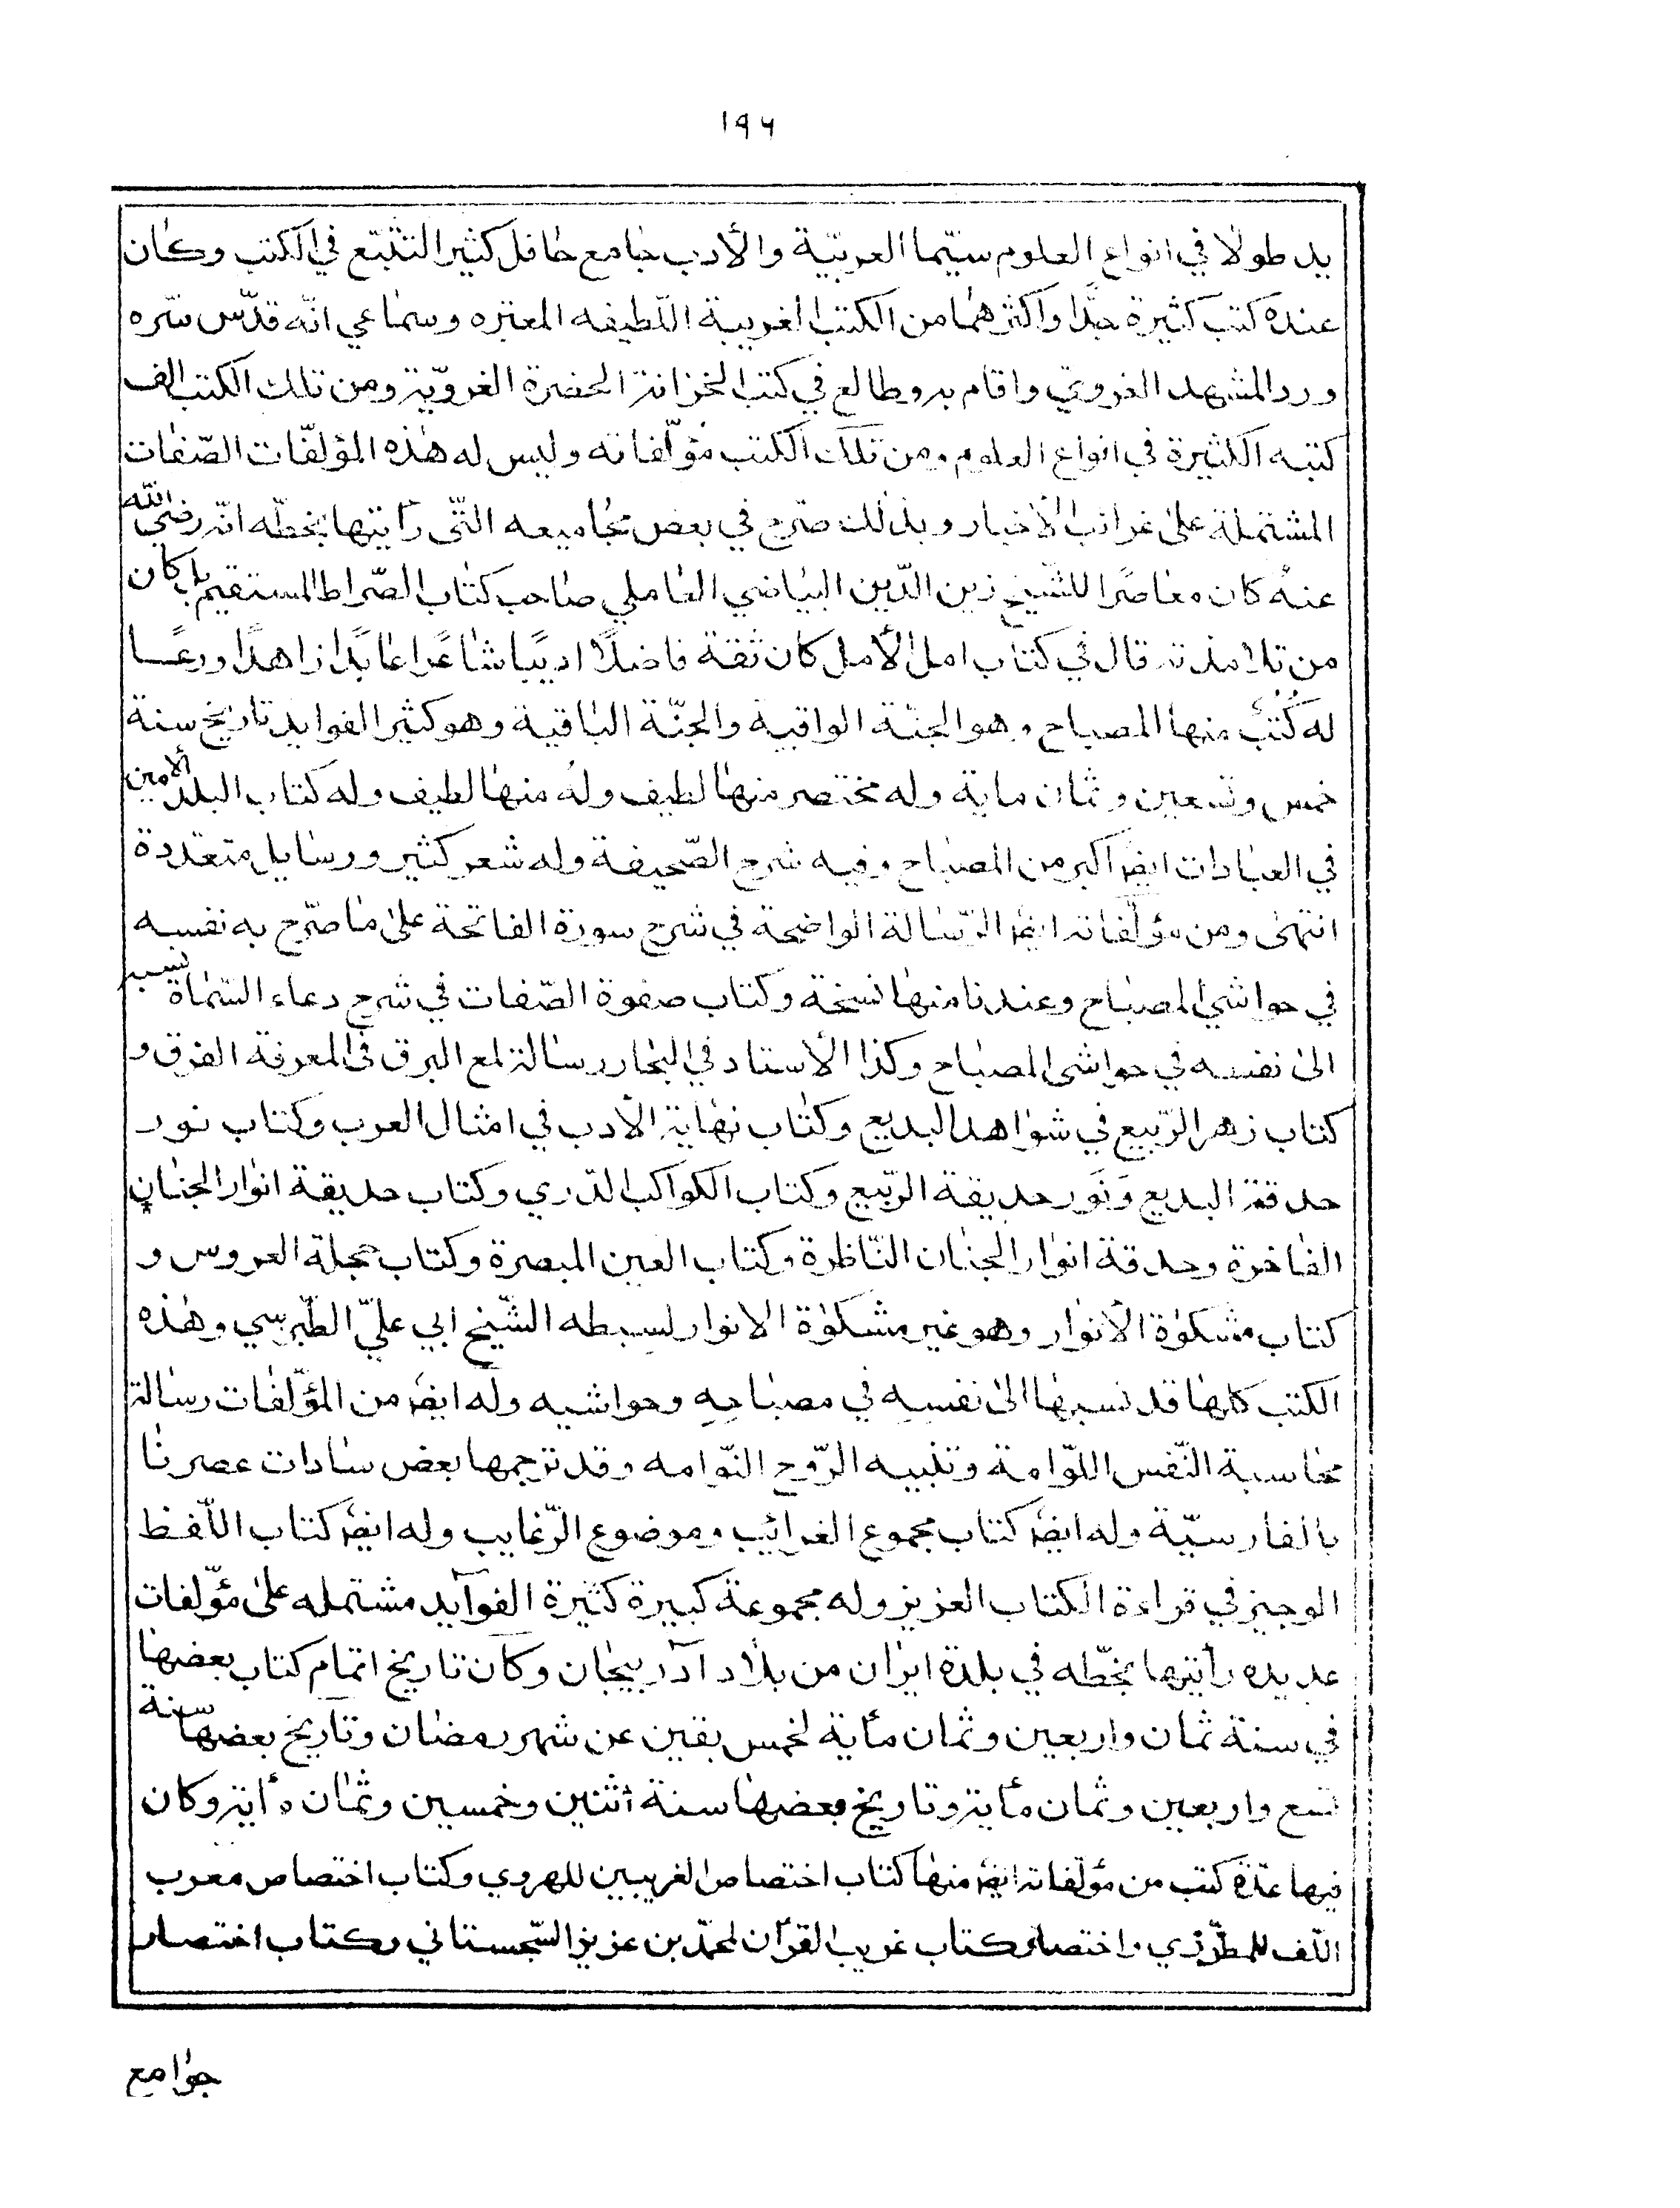 ١٩٦
يد طولا في انواع العلوم سيّما العربيّة والأدب جامع حافل كثير التتبّع في الكتب وكان
عنده كتب كثيرة جدّا واكثرهما من الكتب الغريبة اللّطيفه المعتبره وسماعي انّه قدّس سّره
ورد المشهد الغروي واقام به وطالع في كتب الخزانة الحضرة الغرويّة ومن تلك الكتب الف
كتبه الكثيرة في انواع العلوم ومن تلك الكتب مؤلّفاته وليس له هذه المؤلّفات الصّفات
المشتملة على غرائب الأخبار وبذلك صّرح في بعض مجاميعه التّى رأيتها بخطّه انّه رضي الله
عنه كان معاصرًا للشّيخ زين الدّين البياضي العاملي صاحب كتاب الصّراط المستقيم بل كان
من تلامذته قال في كتاب امل الأمل كان ثقة فاضلًا اديبًا شاعرًا عابدًا زاهدًا ورعًا
له كُتُبٌ منها المصباح وهو الجنّة الواقية والجنّة الباقية وهو كثير الفوايد تاريخ سنة
خمس وتسعين وثمان ماية وله مختصر منها لطيف وله منها لطيف وله كتاب البلد الأمين
في العبادات ايضً اكبر من المصباح وفيه شرح الصّحيفة وله شعر كثير ورسايل متعدّدة
انتهى ومن مؤلّفاته ايضً الرّسالة الواضحة في شرح سورة الفاتحة على ما صّرح به نفسه
في حواشي المصباح وعندنا منها نسخة وكتاب صفوة الصّفات في شرح دعاء السّماة نسبه
الى نفسه في حواشى المصباح وكذا الأستاد في البحار رسالة لمع البرق فى المعرفة الفرق و
كتاب زهر الرّبيع في شواهد البديع وكتاب نهاية الأدب في امثال العرب وكتاب نور
حدقة البديع وَنَور حديقة الرّبيع وكتاب الكواكب الدّري وكتاب حديقة انوار الجنان
الفاخرة وحدقة انوار الجنان النّاظرة وكتاب العين المبصرة وكتاب حجلة العروس و
كتاب مشكوة الأنوار وهو غير مشكوة الانوار لسبطه الشّيخ ابي عليّ الطّبرسي وهذه
الكتب كلها قد نسبها الى نفسه في مصباحه وحواشيه وله ايضً من المؤلّفات رسالة
محاسبة النّفس اللوّامة وتنبيه الرّوح النّوامه وقد ترجمها بعض سادات عصرنا
بالفارسيّة وله ايضً كتاب مجموع الغرائب وموضوع الرّغايب وله ايضً كتاب اللّفظ
الوجيز في قراءة الكتاب العزيز وله مجموعة كبيرة كثيرة الفوآيد مشتمله على مؤلّفات
عديده رأيتها بخطّه في بلدة ايران من بلاد آذربيجان وكان تاريخ اتمام كتاب بعضها
في سنة ثمان واربعين وثمان مأية لخمس بقين عن شهر رمضان وتاريخ بعضها سنة
تسع واربعين وثمان مأية وتاريخ بعضها سنة اثنين وخمسين وثمان مأية وكان
فيها عدّة كتب من مؤلّفاته ايضً منها كتاب اختصاص الغريبين للهروي وكتاب اختصاص معرب
اللّف للمطرّزي واختصار كتاب غريب القرآن لمحمّد بن عزيز السّجستاني وكتاب اختصار
جوامع